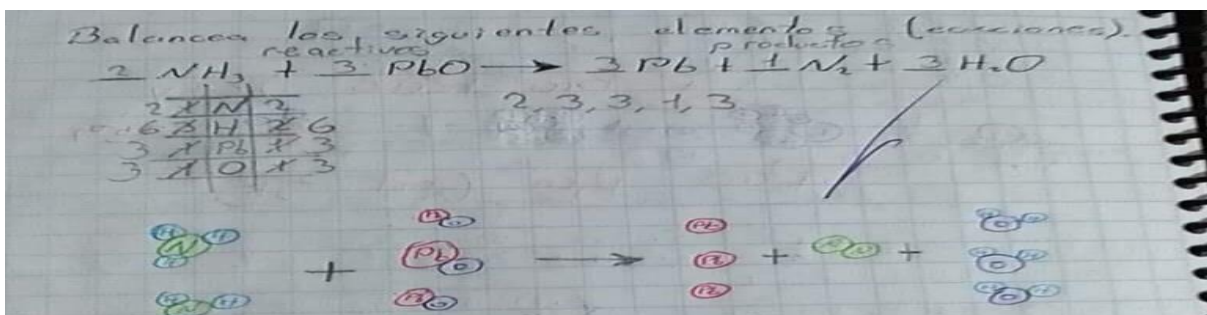 Balancea los siguientes elementos (ecuaciones).
reactivos productos
2 NH₃ + 3 PbO → 3 Pb + 1 N₂ + 3 H₂O
2, 3, 3, 1, 3
2 1 N 2
6 3 H 2 6
3 1 Pb 1 3
3 1 O 1 3
H H N H + Pb O → Pb + N N + H O H
Pb O Pb H O H
H H N Pb O Pb H O H